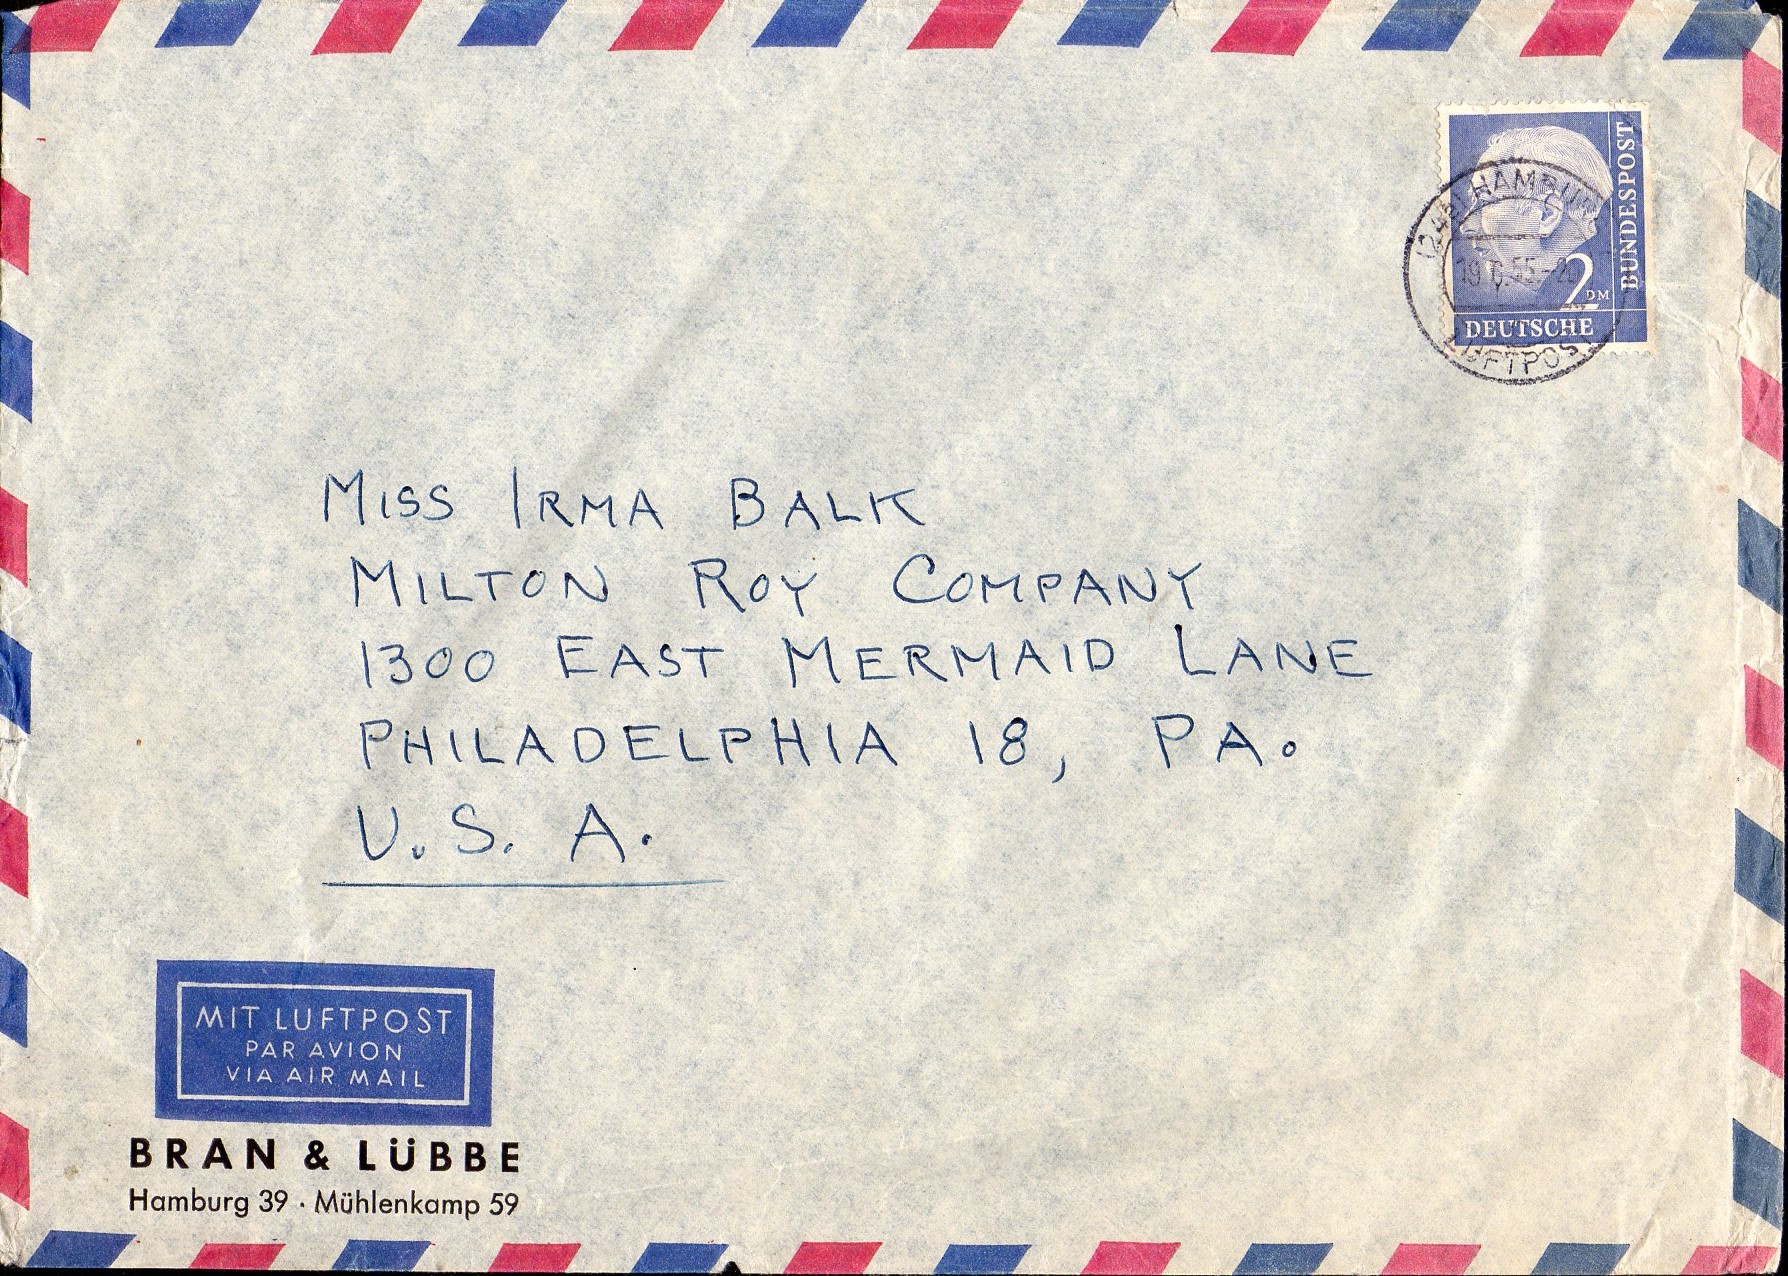 BUNDESPOST
2 DM
DEUTSCHE
HAMBURG
LUFTPOST
MISS IRMA BALK
MILTON ROY COMPANY
1300 EAST MERMAID LANE
PHILADELPHIA 18, PA.
U. S. A.
MIT LUFTPOST
PAR AVION
VIA AIR MAIL
BRAN & LÜBBE
Hamburg 39 · Mühlenkamp 59